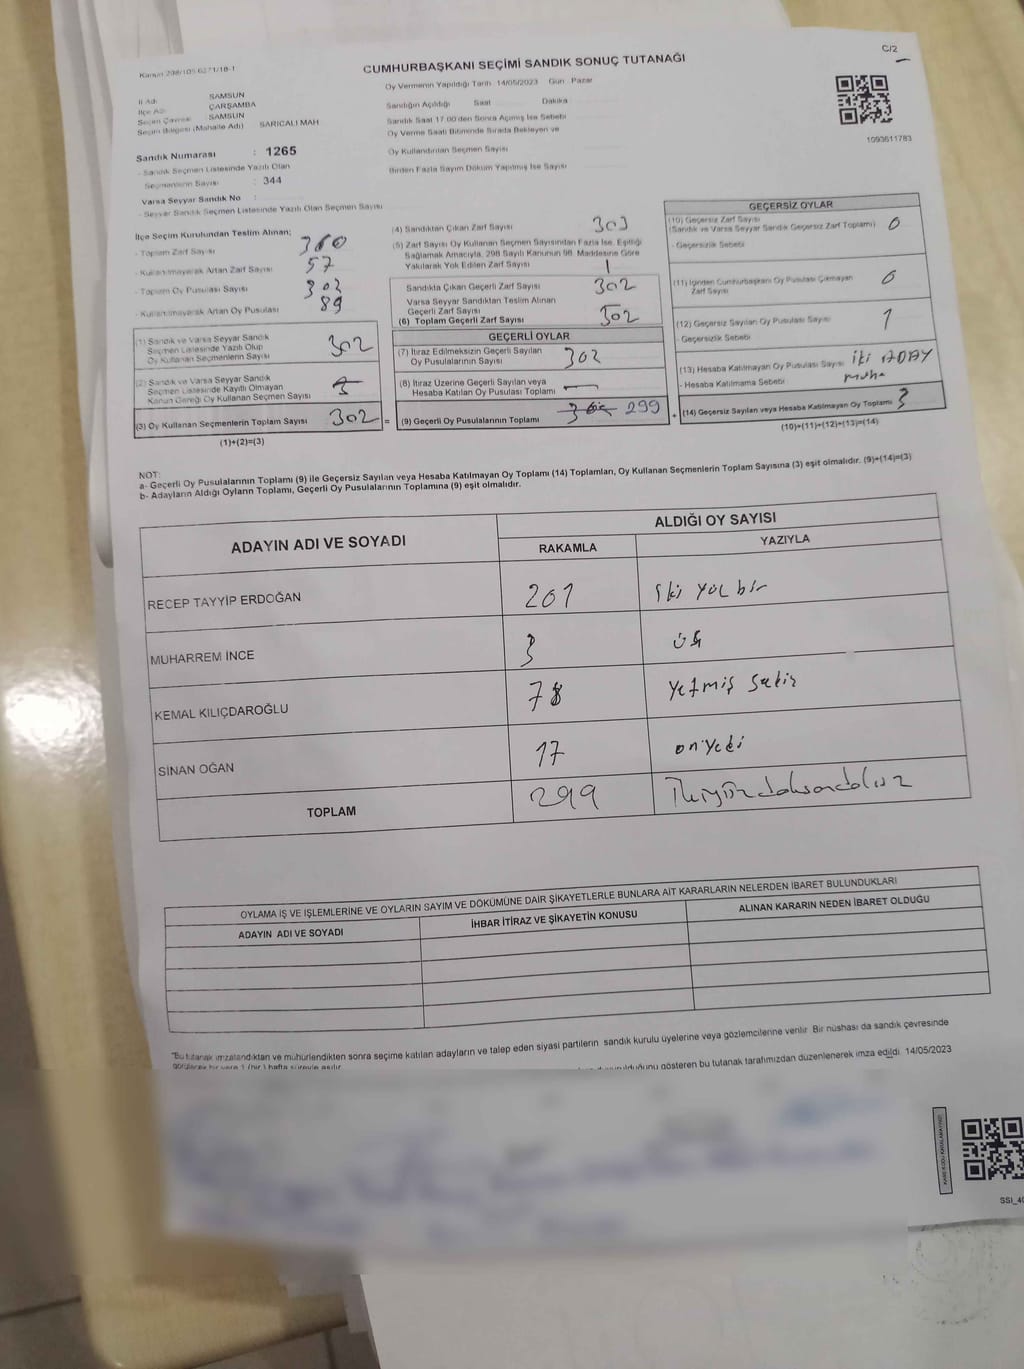 C/2
Kanun 298/105 6271/18-1
CUMHURBAŞKANI SEÇİMİ SANDIK SONUÇ TUTANAĞI
İl Adı SAMSUN
İlçe Adı ÇARŞAMBA
Seçim Çevresi : SAMSUN
Seçim Bölgesi (Mahalle Adı) SARICALI MAH
Sandık Numarası : 1265
- Sandık Seçmen Listesinde Yazılı Olan
Seçmenlerin Sayısı : 344
Varsa Seyyar Sandık No :
- Seyyar Sandık Seçmen Listesinde Yazılı Olan Seçmen Sayısı
Oy Vermenin Yapıldığı Tarih 14/05/2023 Gün Pazar
Sandığın Açıldığı Saat Dakika
Sandık Saat 17.00'den Sonra Açılmış İse Sebebi
Oy Verme Saati Bitiminde Sırada Bekleyen ve
Oy Kullandırılan Seçmen Sayısı
Birden Fazla Sayım Döküm Yapılmış İse Sayısı
1093611783
İlçe Seçim Kurulundan Teslim Alınan;
- Toplam Zarf Sayısı 360
- Kullanılmayarak Artan Zarf Sayısı 57
- Toplam Oy Pusulası Sayısı 303
- Kullanılmayarak Artan Oy Pusulası 89
(1) Sandık ve Varsa Seyyar Sandık
Seçmen Listesinde Yazılı Olup
Oy Kullanan Seçmenlerin Sayısı 302
(2) Sandık ve Varsa Seyyar Sandık
Seçmen Listesinde Kayıtlı Olmayan
Kanun Gereği Oy Kullanan Seçmen Sayısı
(3) Oy Kullanan Seçmenlerin Toplam Sayısı 302 =
(1)+(2)=(3)
(4) Sandıktan Çıkan Zarf Sayısı 303
(5) Zarf Sayısı Oy Kullanan Seçmen Sayısından Fazla İse, Eşitliği
Sağlamak Amacıyla, 298 Sayılı Kanunun 98. Maddesine Göre
Yakılarak Yok Edilen Zarf Sayısı 1
Sandıkta Çıkan Geçerli Zarf Sayısı 302
Varsa Seyyar Sandıktan Teslim Alınan
Geçerli Zarf Sayısı
(6) Toplam Geçerli Zarf Sayısı 302
GEÇERLİ OYLAR
(7) İtiraz Edilmeksizin Geçerli Sayılan
Oy Pusulalarının Sayısı 302
(8) İtiraz Üzerine Geçerli Sayılan veya
Hesaba Katılan Oy Pusulası Toplamı —
(9) Geçerli Oy Pusulalarının Toplamı 299 +
GEÇERSİZ OYLAR
(10) Geçersiz Zarf Sayısı
(Sandık ve Varsa Seyyar Sandık Geçersiz Zarf Toplamı) 0
- Geçersizlik Sebebi
(11) İçinden Cumhurbaşkanı Oy Pusulası Çıkmayan
Zarf Sayısı 0
(12) Geçersiz Sayılan Oy Pusulası Sayısı 1
- Geçersizlik Sebebi
(13) Hesaba Katılmayan Oy Pusulası Sayısı iki ADAY
- Hesaba Katılmama Sebebi
(14) Geçersiz Sayılan veya Hesaba Katılmayan Oy Toplamı 3
(10)+(11)+(12)+(13)=(14)
NOT:
a- Geçerli Oy Pusulalarının Toplamı (9) ile Geçersiz Sayılan veya Hesaba Katılmayan Oy Toplamı (14) Toplamları, Oy Kullanan Seçmenlerin Toplam Sayısına (3) eşit olmalıdır. (9)+(14)=(3)
b- Adayların Aldığı Oyların Toplamı, Geçerli Oy Pusulalarının Toplamına (9) eşit olmalıdır.
ADAYIN ADI VE SOYADI
ALDIĞI OY SAYISI
RAKAMLA YAZIYLA
RECEP TAYYİP ERDOĞAN 201 iki yüz bir
MUHARREM İNCE 3 üç
KEMAL KILIÇDAROĞLU 78 yetmiş sekiz
SİNAN OĞAN 17 onyedi
TOPLAM 299 ikiyüzdoksandokuz
OYLAMA İŞ VE İŞLEMLERİNE VE OYLARIN SAYIM VE DÖKÜMÜNE DAİR ŞİKAYETLERLE BUNLARA AİT KARARLARIN NELERDEN İBARET BULUNDUKLARI
ADAYIN ADI VE SOYADI İHBAR İTİRAZ VE ŞİKAYETİN KONUSU ALINAN KARARIN NEDEN İBARET OLDUĞU
"Bu tutanak imzalandıktan ve mühürlendikten sonra seçime katılan adayların ve talep eden siyasi partilerin sandık kurulu üyelerine veya gözlemcilerine verilir. Bir nüshası da sandık çevresinde
görülecek bir yere 1 (bir) hafta süreyle asılır
olduğunu gösteren bu tutanak tarafımızdan düzenlenerek imza edildi. 14/05/2023